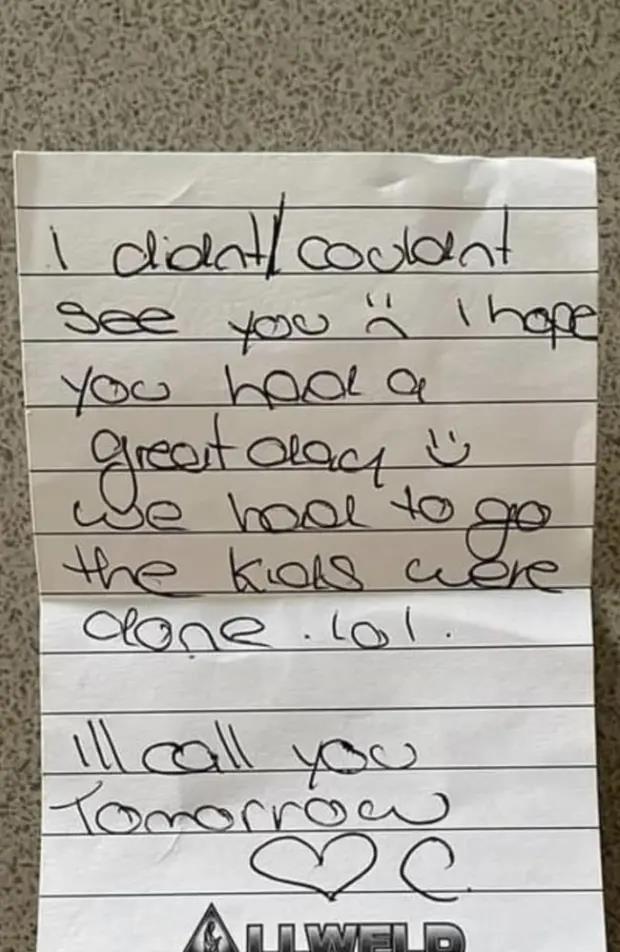 I didnt/couldnt
see you :( I hope
you had a
great day :)
we had to go
the kids were
done. lol.
Ill call you
Tomorrow
♡ C.
ALLWELD